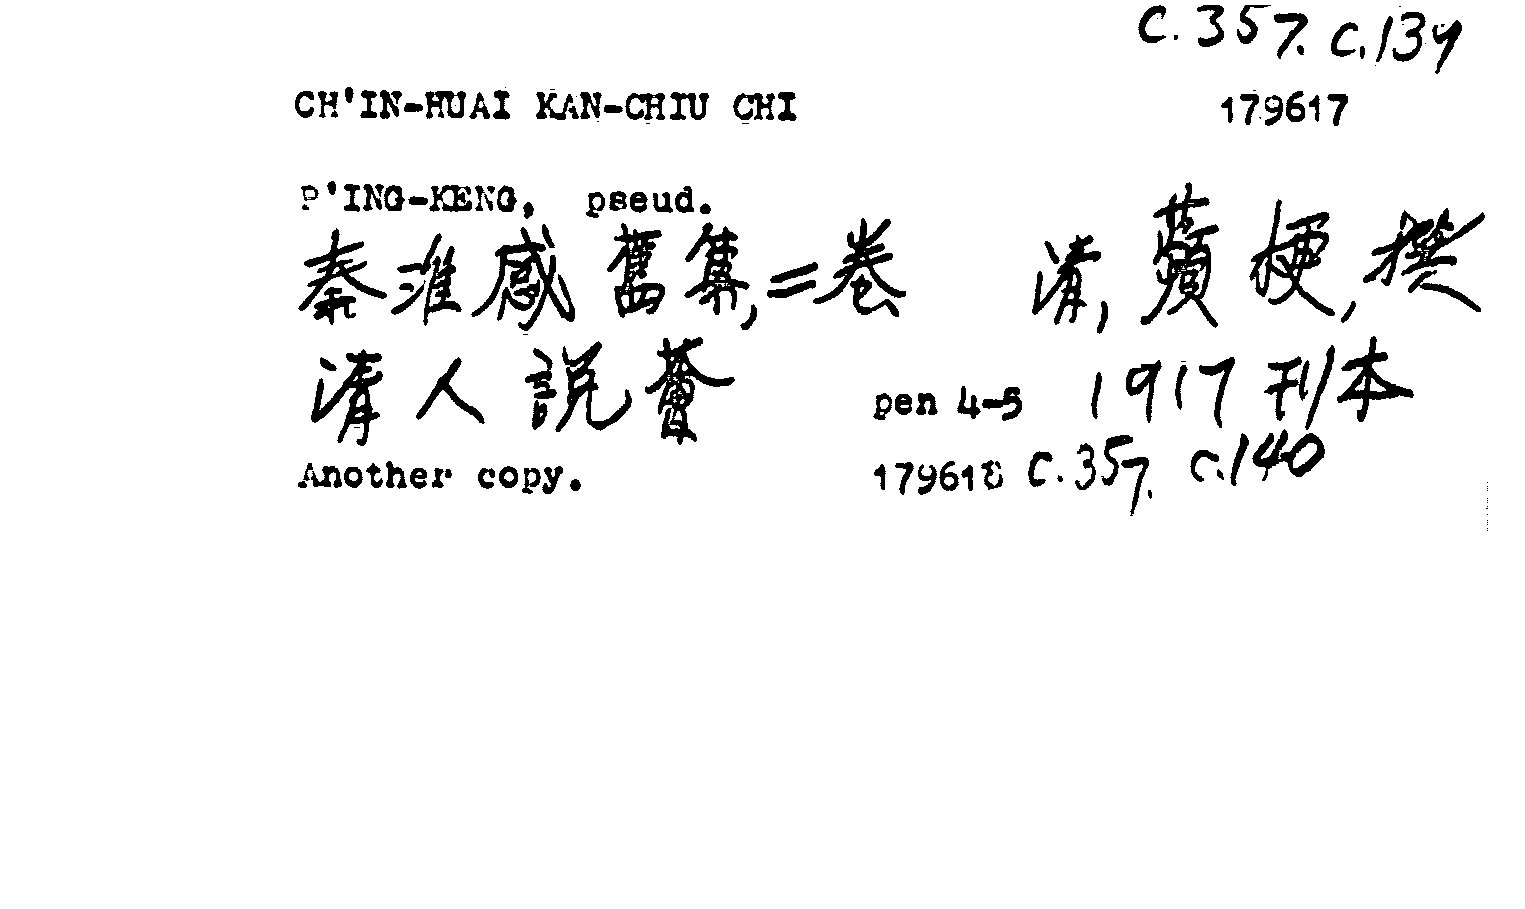 C.357. C.139
CH'IN-HUAI KAN-CHIU CHI 179617
P'ING-KENG, pseud.
秦淮感舊集,二卷 清,蘋梗,撰
清人說薈 pen 4-5 1917刊本
Another copy. 179618 C.357. C.140